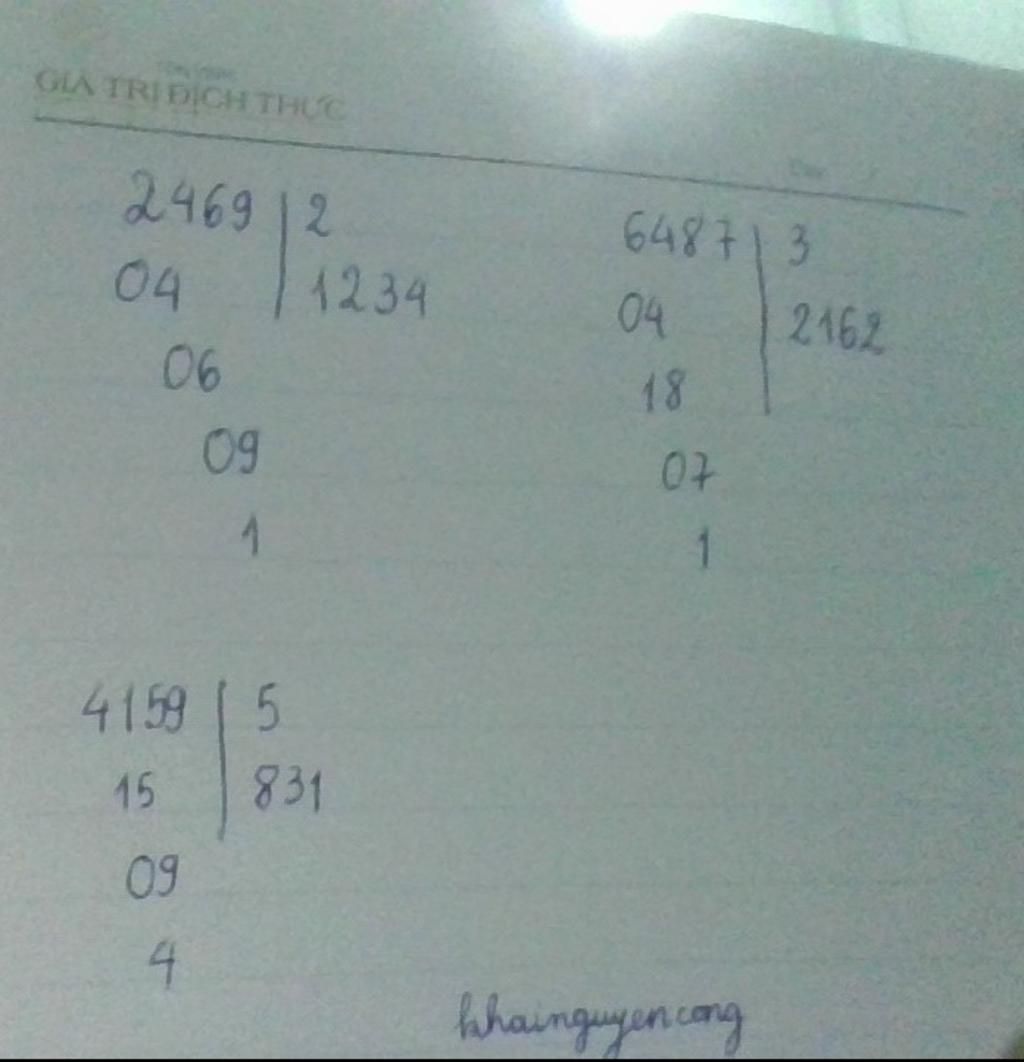 GIÁ TRỊ ĐÍCH THỰC
2469 2
04 1234
06
09
1
6487 3
04 2162
18
07
1
4159 5
15 831
09
4
khainguyencong